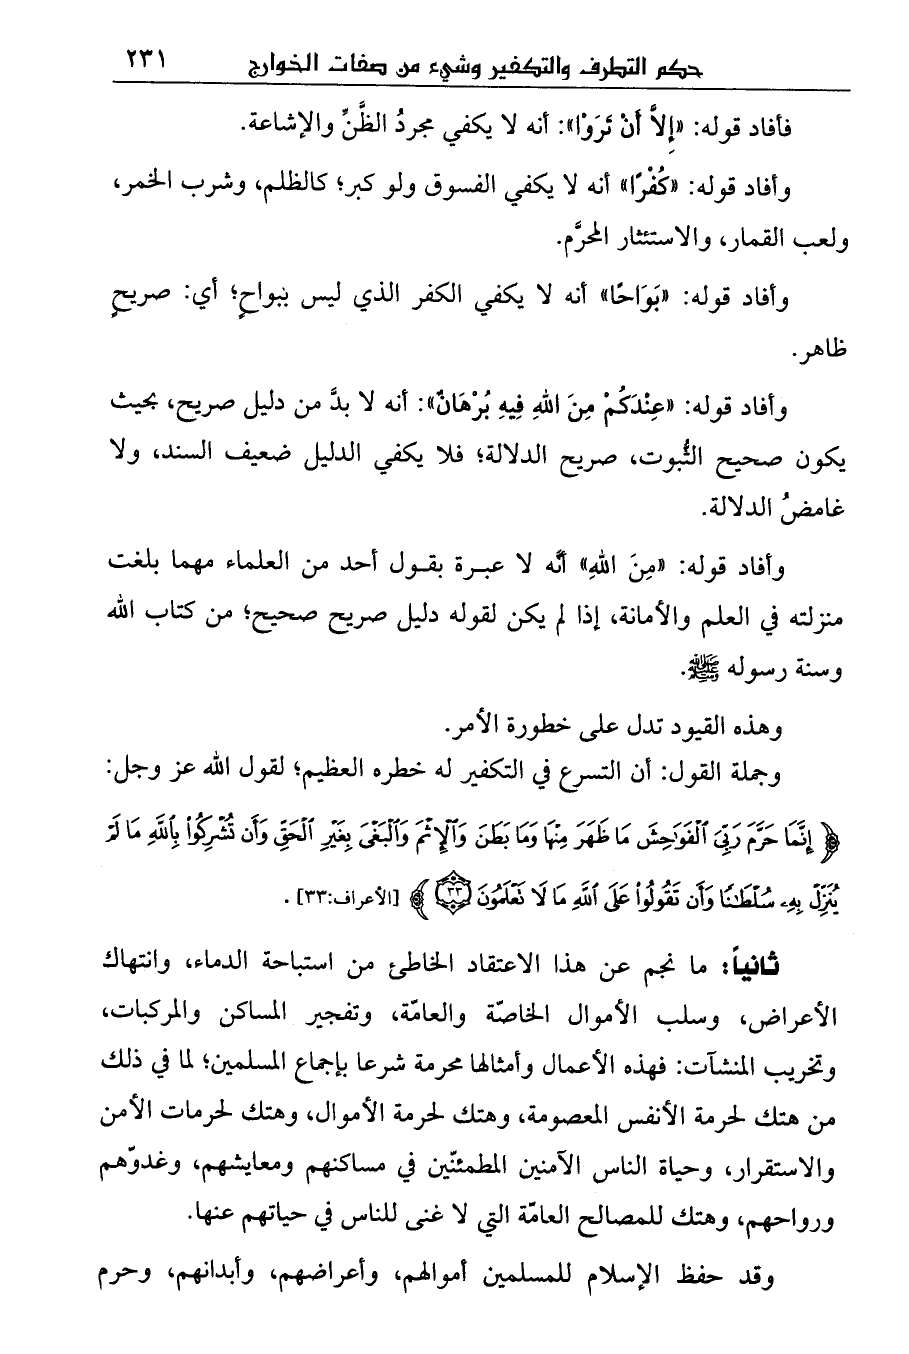 حكم التطرف والتكفير وشيء من صفات الخوارج ٢٣١
فأفاد قوله: «إِلاَّ أَنْ تَرَوْا»: أنه لا يكفي مجردُ الظَّنِّ والإشاعة.
وأفاد قوله: «كُفْرًا» أنه لا يكفي الفسوق ولو كبر؛ كالظلم، وشرب الخمر،
ولعب القمار، والاستئثار المحرَّم.
وأفاد قوله: «بَوَاحًا» أنه لا يكفي الكفر الذي ليس ببواحٍ؛ أي: صريحٍ
ظاهر.
وأفاد قوله: «عِنْدَكُمْ مِنَ اللهِ فِيهِ بُرْهَانٌ»: أنه لا بدَّ من دليل صريح، بحيث
يكون صحيح الثُّبوت، صريح الدلالة؛ فلا يكفي الدليل ضعيف السند، ولا
غامضُ الدلالة.
وأفاد قوله: «مِنَ اللهِ» أنَّه لا عبـرة بقـول أحد من العلماء مهما بلغت
منزلته في العلم والأمانة، إذا لم يكن لقوله دليل صريح صحيح؛ من كتاب الله
وسنة رسوله ﷺ.
وهذه القيود تدل على خطورة الأمر.
وجملة القول: أن التسرع في التكفير له خطره العظيم؛ لقول الله عز وجل:
﴿ إِنَّمَا حَرَّمَ رَبِّيَ ٱلْفَوَٰحِشَ مَا ظَهَرَ مِنْهَا وَمَا بَطَنَ وَٱلْإِثْمَ وَٱلْبَغْىَ بِغَيْرِ ٱلْحَقِّ وَأَن تُشْرِكُوا۟ بِٱللَّهِ مَا لَمْ
يُنَزِّلْ بِهِۦ سُلْطَٰنًا وَأَن تَقُولُوا۟ عَلَى ٱللَّهِ مَا لَا تَعْلَمُونَ ٣٣ ﴾ [الأعراف:٣٣] .
ثانياً: ما نجم عن هذا الاعتقاد الخاطئ من استباحة الدماء، وانتهاك
الأعراض، وسلب الأموال الخاصّة والعامّة، وتفجير المساكن والمركبات،
وتخريب المنشآت: فهذه الأعمال وأمثالها محرمة شرعا بإجماع المسلمين؛ لما في ذلك
من هتك لحرمة الأنفس المعصومة، وهتك لحرمة الأموال، وهتك لحرمات الأمن
والاستقرار، وحياة الناس الآمنين المطمئنّين في مساكنهم ومعايشهم، وغدوّهم
ورواحهم، وهتك للمصالح العامّة التي لا غنى للناس في حياتهم عنها.
وقد حفظ الإسلام للمسلمين أموالهم، وأعراضهم، وأبدانهم، وحرم